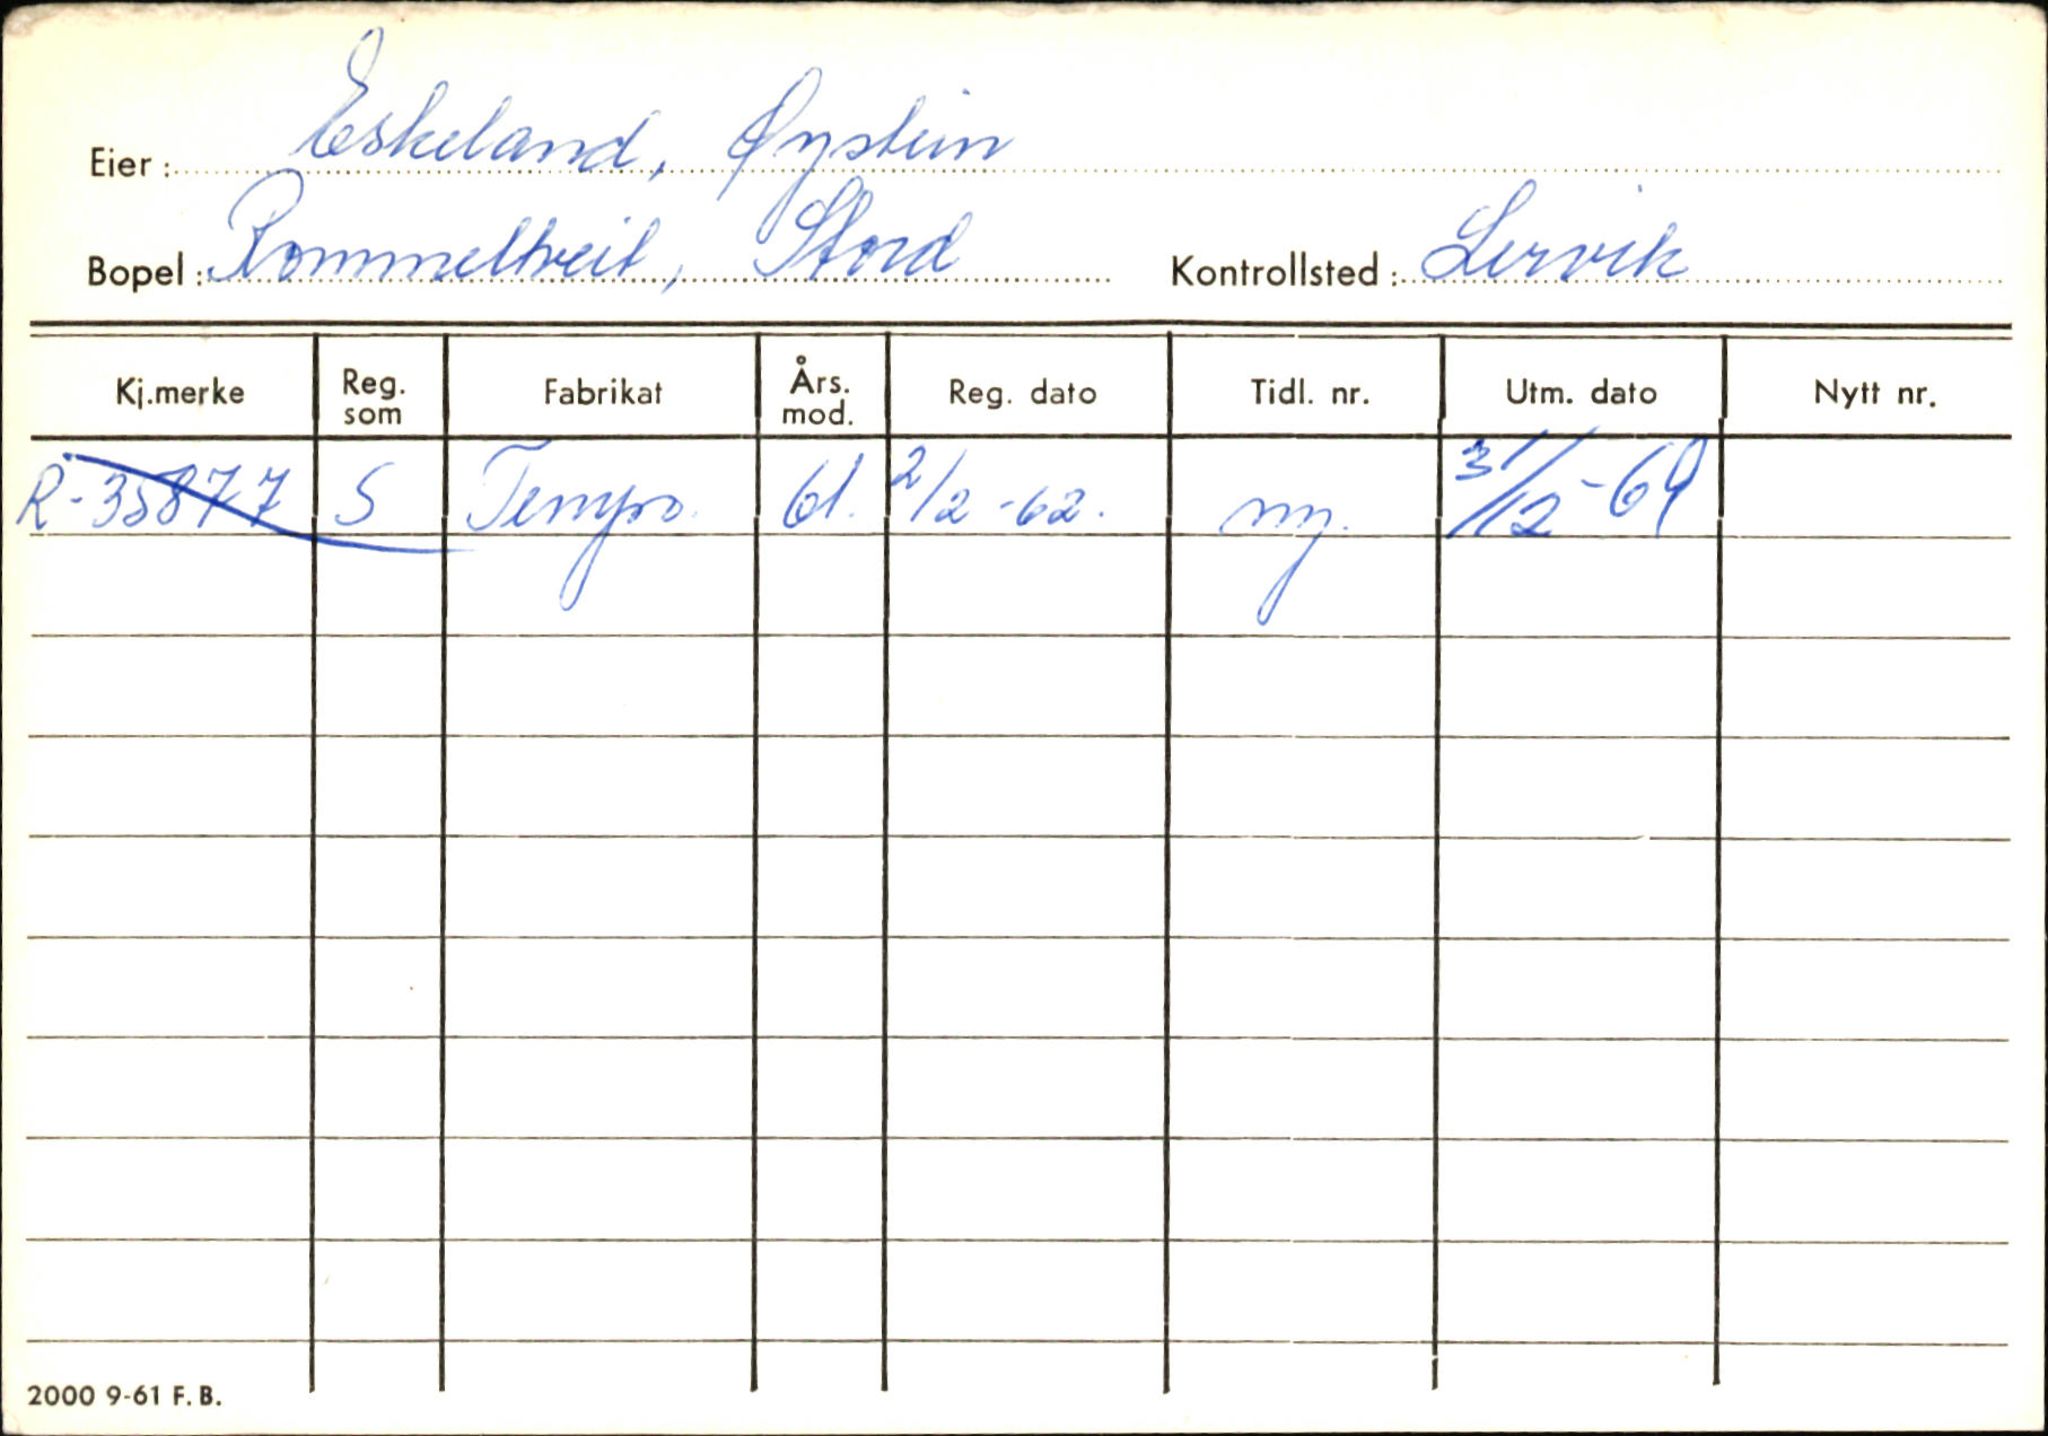 Eier: Eskeland, Øystein
Bopel: Rommeltveit, Stord Kontrollsted: Lervik
Kj.merke Reg. som Fabrikat Års. mod. Reg. dato Tidl. nr. Utm. dato Nytt nr.
R-35877 S Tempo. 61. 2/2-62. ny. 31/12-69
2000 9-61 F.B.